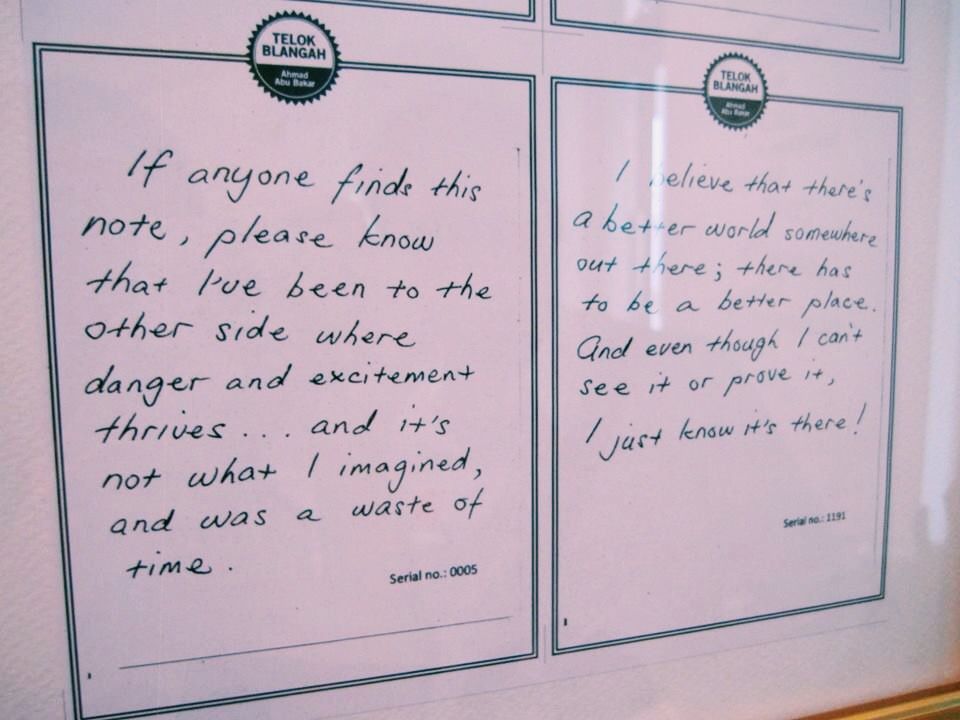 TELOK
BLANGAH
Ahmad
Abu Bakar
If anyone finds this
note, please know
that I've been to the
other side where
danger and excitement
thrives... and it's
not what I imagined,
and was a waste of
time.
Serial no.: 0005
TELOK
BLANGAH
Ahmad
Abu Bakar
I believe that there's
a better world somewhere
out there; there has
to be a better place.
And even though I can't
see it or prove it,
I just know it's there!
Serial no.: 1191